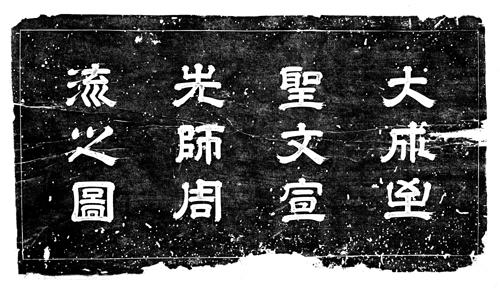 大成至
聖文宣
先師周
流之圖